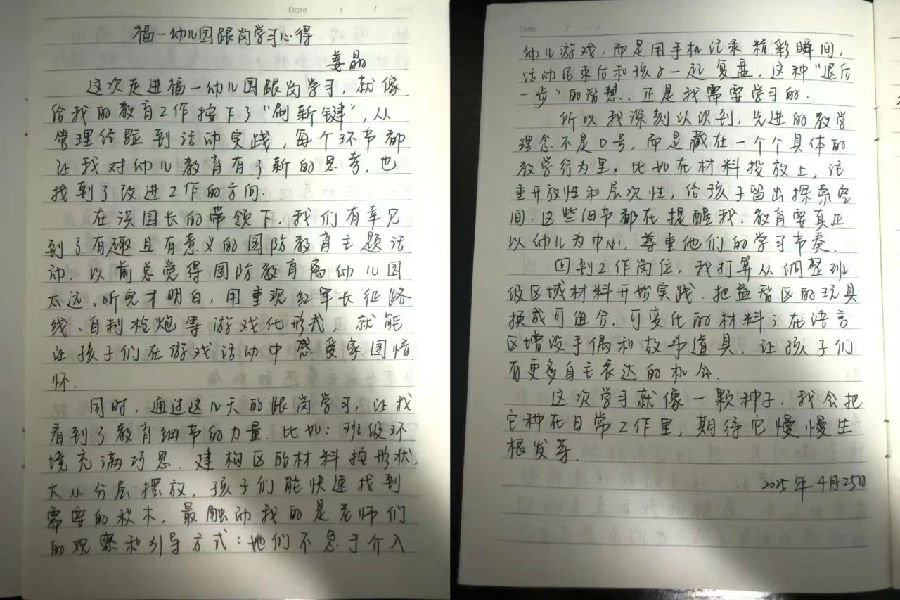 Date / /
福一幼儿园跟岗学习心得
姜晶
这次走进福一幼儿园跟岗学习，就像
给我的教育工作按下了“刷新键”，从
管理经验到活动实践，每个环节都
让我对幼儿教育有了新的思考，也
找到了改进工作的方向.
在该园长的带领下，我们有幸见
到了有趣且有意义的国防教育主题活
动，以前总觉得国防教育离幼儿园
太远，听完才明白，用重现红军长征路
线、自制枪炮等游戏化形式，就能
让孩子们在游戏活动中感受家国情
怀.
同时，通过这几天的跟岗学习，让我
看到了教育细节的力量.比如：班级环
境充满巧思.建构区的材料按形状、
大小分层摆放，孩子们能快速找到
需要的积木，最触动我的是老师们
的观察和引导方式：她们不急于介入
Date / /
幼儿游戏，而是用手机记录精彩瞬间，
活动结束后和孩子一起复盘，这种“退后
一步”的智慧，正是我需要学习的.
所以我深刻认识到，先进的教学
理念不是口号，而是藏在一个个具体的
教学行为里，比如在材料投放上，注
重开放性和层次性，给孩子留出探索空
间.这些细节都在提醒我，教育要真正
以幼儿为中心，尊重他们的学习节奏.
回到工作岗位，我打算从调整班
级区域材料开始实践.把益智区的玩具
换成可组合、可变化的材料；在语言
区增设手偶和故事道具，让孩子们
有更多自主表达的机会.
这次学习就像一颗种子，我会把
它种在日常工作里，期待它慢慢生
根发芽.
2025年4月25日